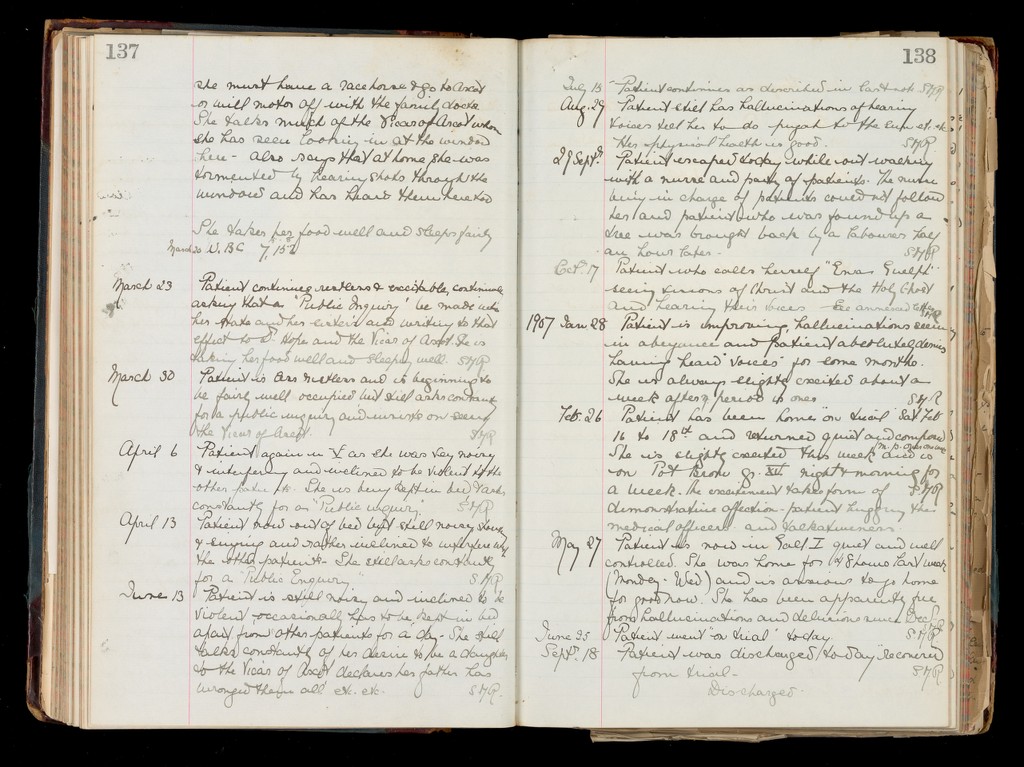 137
she must have a racehorse & go to Ascot
or will motor off with the family doctor
She talks much of the Vicar of Ascot whom
she has seen looking in at the window
here - also says that at home she was
tormented by hearing shots through the
windows and has heard them here too
She takes her food well and sleeps fairly
March 23 Patient continues restless & excitable, continually
asking that a "Public Inquiry" be made into
her state and her sisters and writing to that
effect to Dr Hope and the Vicar of Ascot. She is
taking her food well and sleeping well. SMR
March 30 Patient is less restless and is beginning to
be fairly well occupied but still asks constantly
for a public inquiry and insists on seeing
the Vicar of Ascot. SMR
April 6 Patient again in V as she was very noisy
& interfering and inclined to be violent to the
other patients. She is being kept in bed & asks
constantly for a "Public inquiry" SMR
April 13 Patient now out of bed but still noisy
& singing and rather inclined to interfere with
the other patients - She still asks constantly
for a "Public Enquiry" SMR
June 13 Patient is still noisy and inclined to be
violent occasionally has to be kept in bed
apart from other patients for a day - She still
talks constantly of her desire to be a daughter
to the Vicar of Ascot declares her father has
wronged them all etc. etc. SMR
138
July 13 Patient continues as described in last note SMR
Aug. 29 Patient still has hallucinations of hearing
voices tell her to do pujah to the sun etc. etc.
Her physical health is good. SMR
29 Sept. Patient escaped today while out walking
with a nurse and party of patients. The nurse
being in charge of patients could not follow
her and patient who was found up a
tree was brought back by a labourer half
an hour later - SMR
Oct. 17 Patient who calls herself "Enas Guelph"
seeing visions of Christ and the Holy Ghost
and hearing their voices See annexed letter SMR
1907 Jan 28 Patient is improving, hallucinations seem
in abeyance and patient absolutely denies
having heard "voices" for some months.
She is always slightly excited about a
week after period is over SMR
Feb. 26 Patient has been home "on trial" Sat Feb
16 to 18th and returned quiet and composed
She is slightly excited this week and is
on Pot Brom gr. XV night & morning for
a week. The excitement takes form of SMR
demonstrative affection - patient hugging the
medical officers and talkativeness.
May 27 Patient is now in Galt I quiet and well
controlled. She was home for 48 hours last week
(Monday - Wed) and is anxious to go home
for good now. She has been apparently free
from hallucinations and delusions since Dec. SMR
June 25 Patient went "on trial" today. SMR
Sept. 18 Patient was discharged to-day "recovered"
from trial - SMR
Discharged.